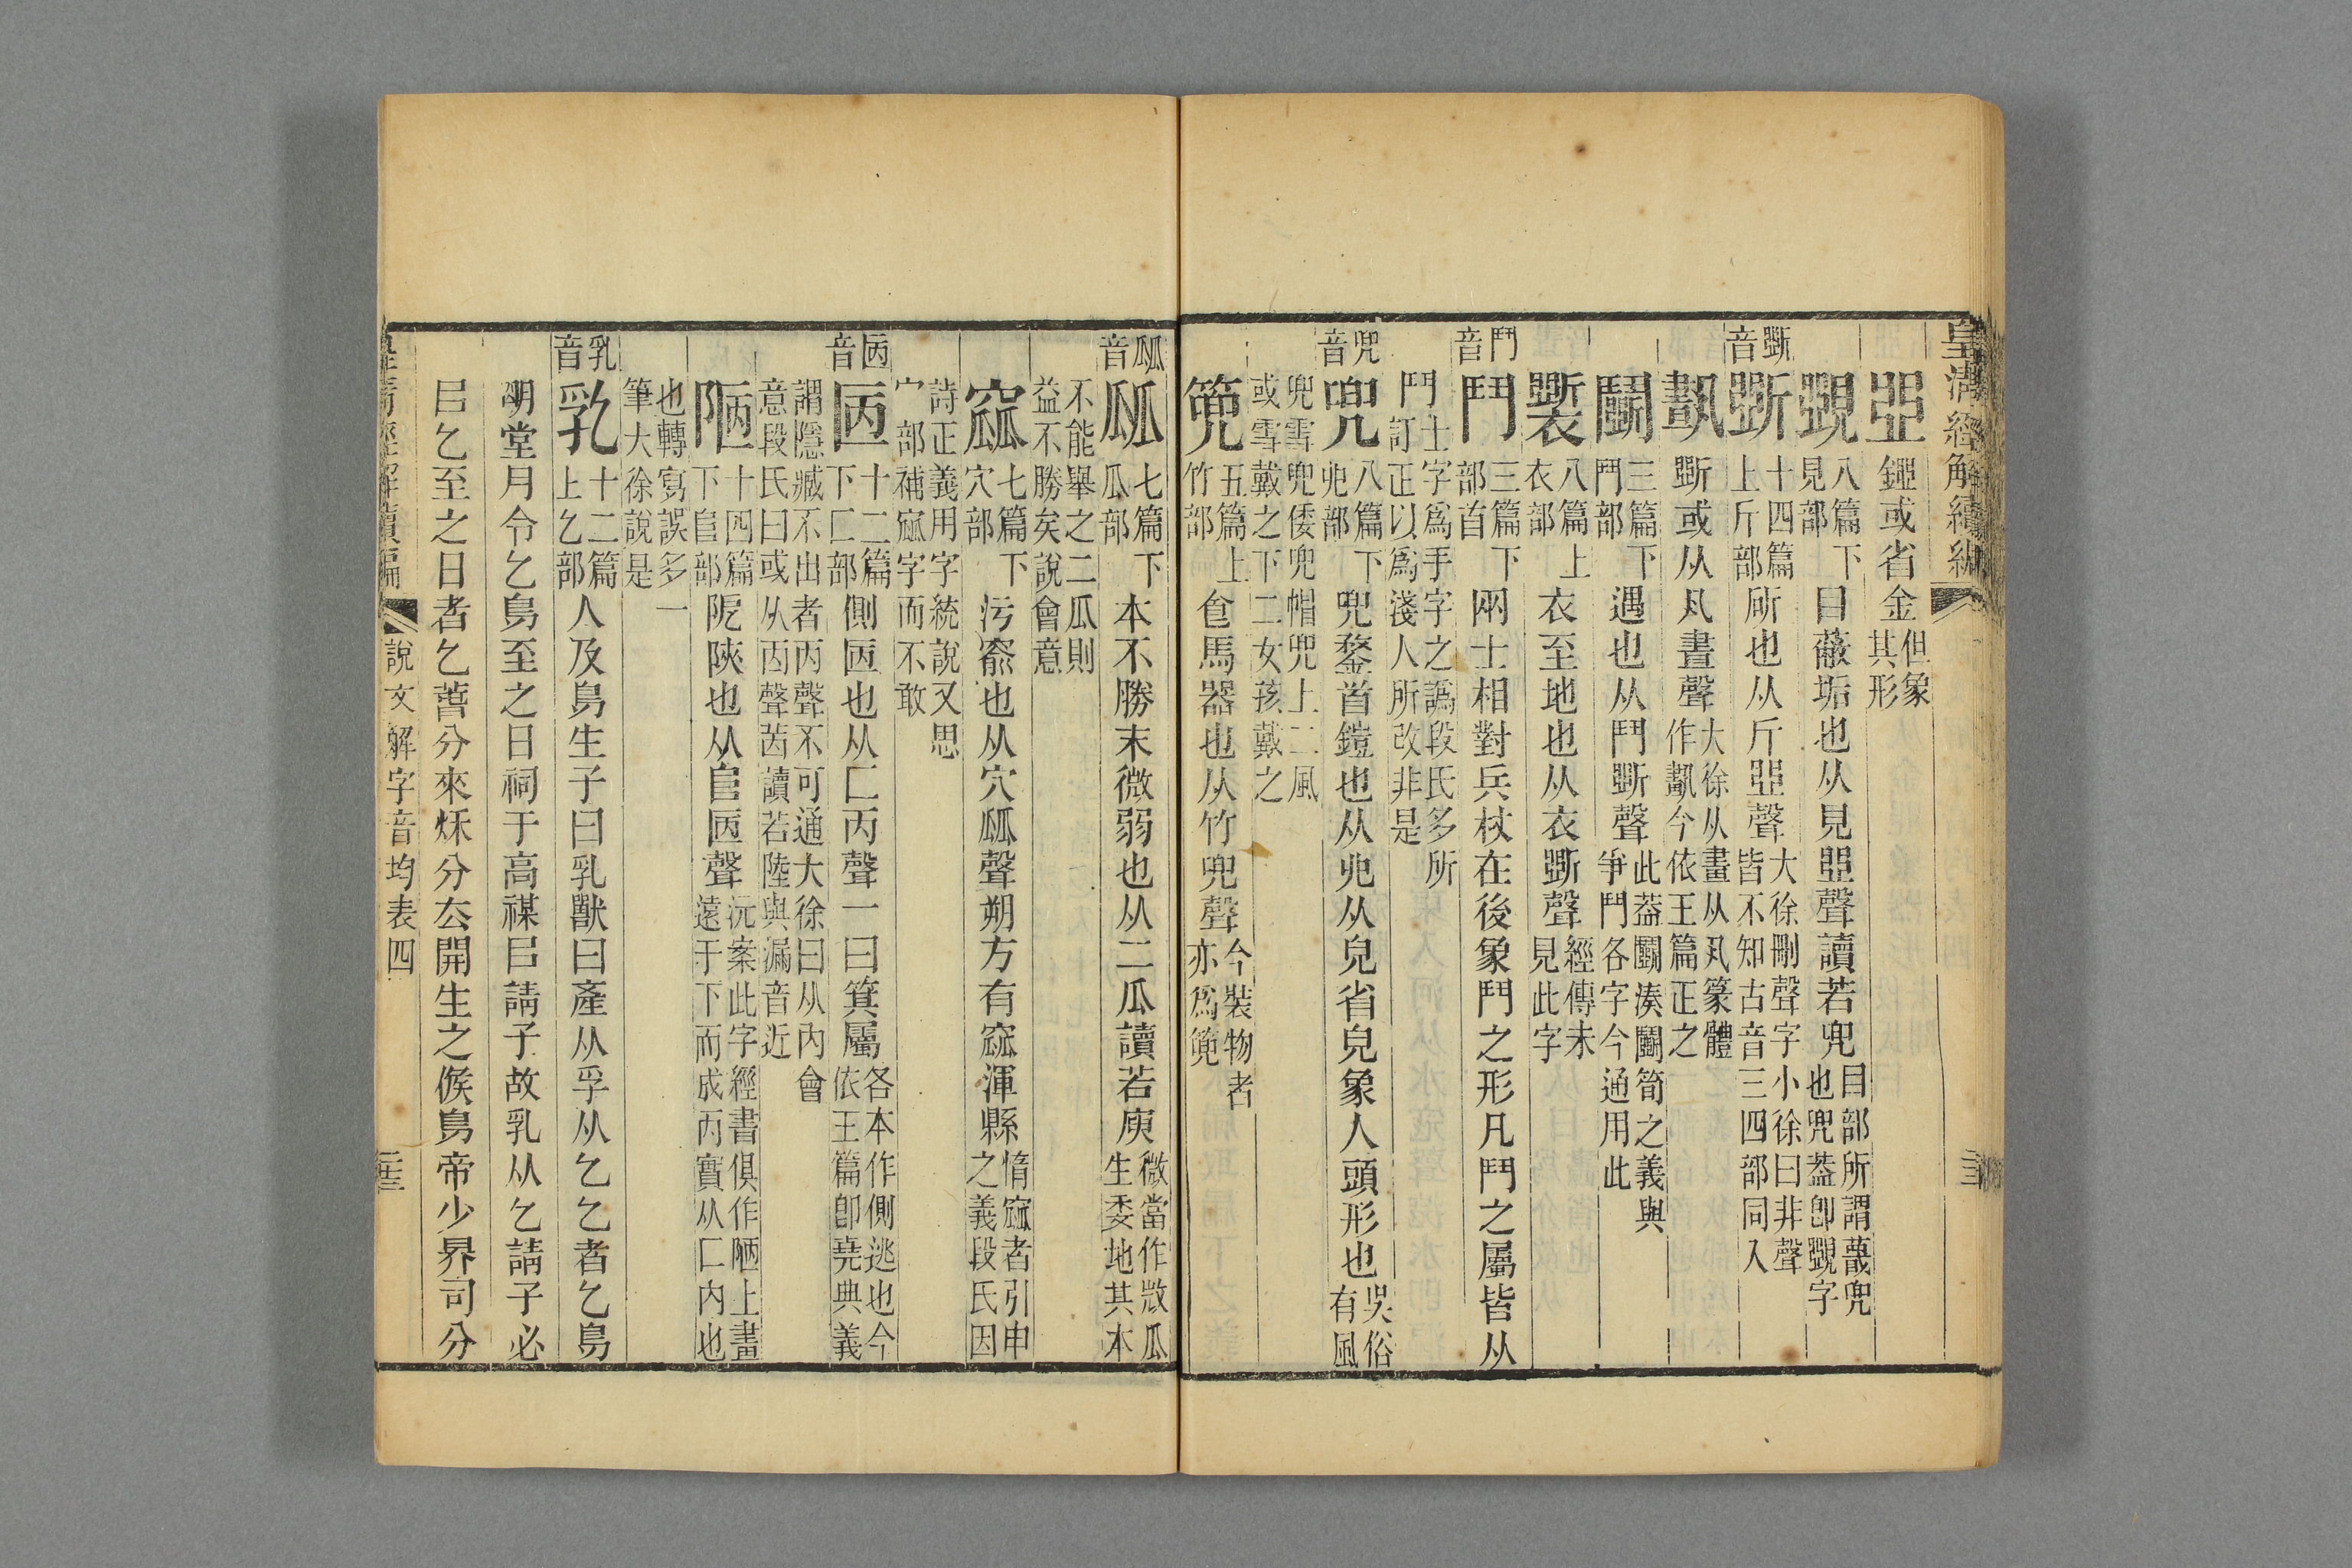 皇清經解續編
𠁁鋀或省金但象其形
覴八篇下見部目蔽垢也从見𠁁聲讀若兜目部所謂䁾兜也兜葢卽覴字
斲音
斲十四篇上斤部斫也从斤𠁁聲大徐刪聲字小徐曰非聲皆不知古音三四部同入
斲或从丮晝聲大徐从畫从丮篆體作劃今依王篇正之
鬭三篇下鬥部遇也从鬥斲聲此葢鬭湊鬭筍之義與爭鬥各字今通用此
八篇上衣部衣至地也从衣斲聲經傳未見此字
鬥音
鬥三篇下部首兩士相對兵杖在後象鬥之形凡鬥之屬皆从
鬥士字爲手字之譌段氏多所訂正以爲淺人所改非是
兜音
兜八篇下皃部兜鍪首鎧也从𠑹从皃省皃象人頭形也吳俗有風
兜雪兜倭兜帽兜上二風或雪戴之下二女孩戴之
篼五篇上竹部飤馬器也从竹兜聲今裝物者亦爲篼
㼌音
㼌七篇下瓜部本不勝末微弱也从二瓜讀若庾微當作𢼸瓜生委地其本
不能舉之二瓜則益不勝矣說會意
窳七篇下穴部污窬也从穴㼌聲朔方有窳渾縣惰窳者引申之義段氏因
詩正義用字統說又思宀部補㼌字而不敢
匧音
㔷十二篇下匸部側㔷也从匸丙聲一曰箕屬各本作側逃也今依王篇卽堯典義
謂隱臧不出者丙聲不可通大徐曰从內會意段氏曰或从㐁聲茜讀若陸與漏音近
陋十四篇下𨸏部阸陝也从𨸏㔷聲沅案此字經書俱作陋上畫遠于下而成丙實从匸內也
也轉寫誤多一筆大徐說是
乳音
乳十二篇上乞部人及鳥生子曰乳獸曰產从孚从乞乞者乞鳥
朙堂月令乞鳥至之日祠于高禖㠯請子故乳从乞請子必
㠯乞至之日者乞萅分來秌分厺開生之候鳥帝少昦司分
皇清經解續編 說文解字音均表四